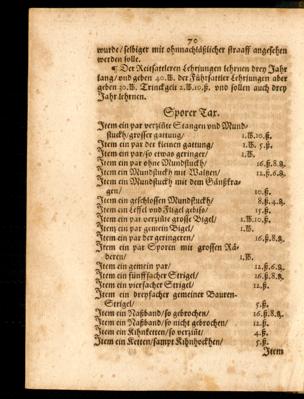 70
wurde/ selbiger mit ohnnachläßlicher straaff angesehen
werden solle.
¶ Der Reitsattleren Lehrjungen lehrnen drey Jahr
lang/ und geben 40. ℔. der Führsattler Lehrjungen aber
geben 30. ℔. Trinckgelt 2. ℔. 10. ß. und sollen auch drey
Jahr lehrnen.
Sporer Tax.
Item ein par verzinte Stangen und Mund-
stuckh/ grosser gattung/ 1. ℔. 10. ß.
Item ein par der kleinen gattung/ 1. ℔. 5. ß.
Item ein par/ so etwas geringer/ 1. ℔.
Item ein par ohne Mundstuckh/ 16. ß. 8. ₰.
Item ein Mundstuckh mit Walzen/ 12. ß. 6. ₰.
Item ein Mundstuckh mit dem Gänßkra-
gen/ 10. ß.
Item ein geschlossen Mundstuckh/ 8. ß. 4. ₰.
Item ein Leffel und Flügel gebiß/ 15. ß.
Item ein par verzinte grosse Bigel/ 1. ℔. 10. ß.
Item ein par gemein Bigel/ 1. ℔.
Item ein par der geringeren/ 16. ß. 8. ₰.
Item ein par Sporen mit grossen Rä-
deren/ 1. ℔.
Item ein gemein par/ 12. ß. 6. ₰.
Item ein fünfffacher Strigel/ 16. ß. 8. ₰.
Item ein vierfacher Strigel/ 12. ß.
Item ein dreyfacher gemeiner Bauren-
Strigel/ 5. ß.
Item ein Naßband/ so gebrochen/ 16. ß. 8. ₰.
Item ein Naßband/ so nicht gebrochen/ 12. ß.
Item ein Kihnketten/ so verzint/ 4. ß.
Item ein Ketten/ sampt Kihnhöckhen/ 5. ß.
Item